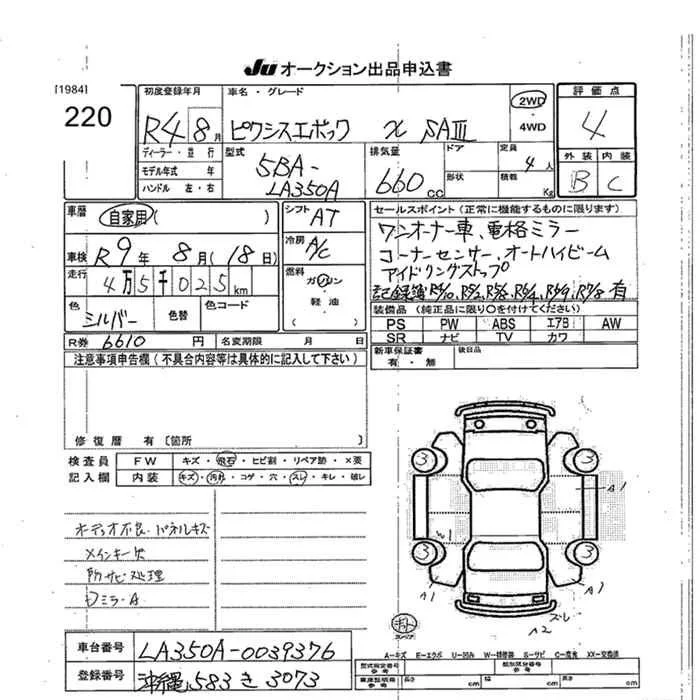 JU オークション出品申込書
[1984]
220
初度登録年月
R4 8月
ディーラー・並行
モデル年式 年
ハンドル 左・右
車名・グレード
ピクシスエポック X SAⅢ
2WD
・4WD
評価点
4
外装 内装
B C
型式
5BA-
LA350A
排気量
660cc
ドア
形状
定員
4人
積載
Kg
車歴
自家用( )
車検 R9年 8月(18日)
走行 4万5千025km
色 シルバー
色替
色コード
シフト AT
冷房 A/C
燃料 ガソリン
・軽油
R券 6610円
名変期限 月 日
セールスポイント(正常に機能するものに限ります)
ワンオーナー車、電格ミラー
コーナーセンサー、オートハイビーム
アイドリングストップ
装備品(純正品に限り○を付けてください)
PS PW ABS エアB AW
SR ナビ TV カワ
新車保証書
有・無
後日品
注意事項申告欄(不具合内容等は具体的に記入して下さい)
修復歴 有〔箇所 〕
検査員
記入欄
FW キズ・飛石・ヒビ割・リペア跡・×要
内装 キズ・汚れ・コゲ・穴・スレ・キレ・破レ
オーディオ不良、パネルキズ
メインキー欠
防サビ処理
Dミラー A
3
3
3
3
A1
W1
A1
A1
A2
ズレ
A-キズ E-エクボ U-凹み W-補修跡 S-サビ C-腐食 XX-交換済
車台番号 LA350A-0039376
登録番号 沖縄 583 き 3073
長さ cm 幅 cm 高さ cm